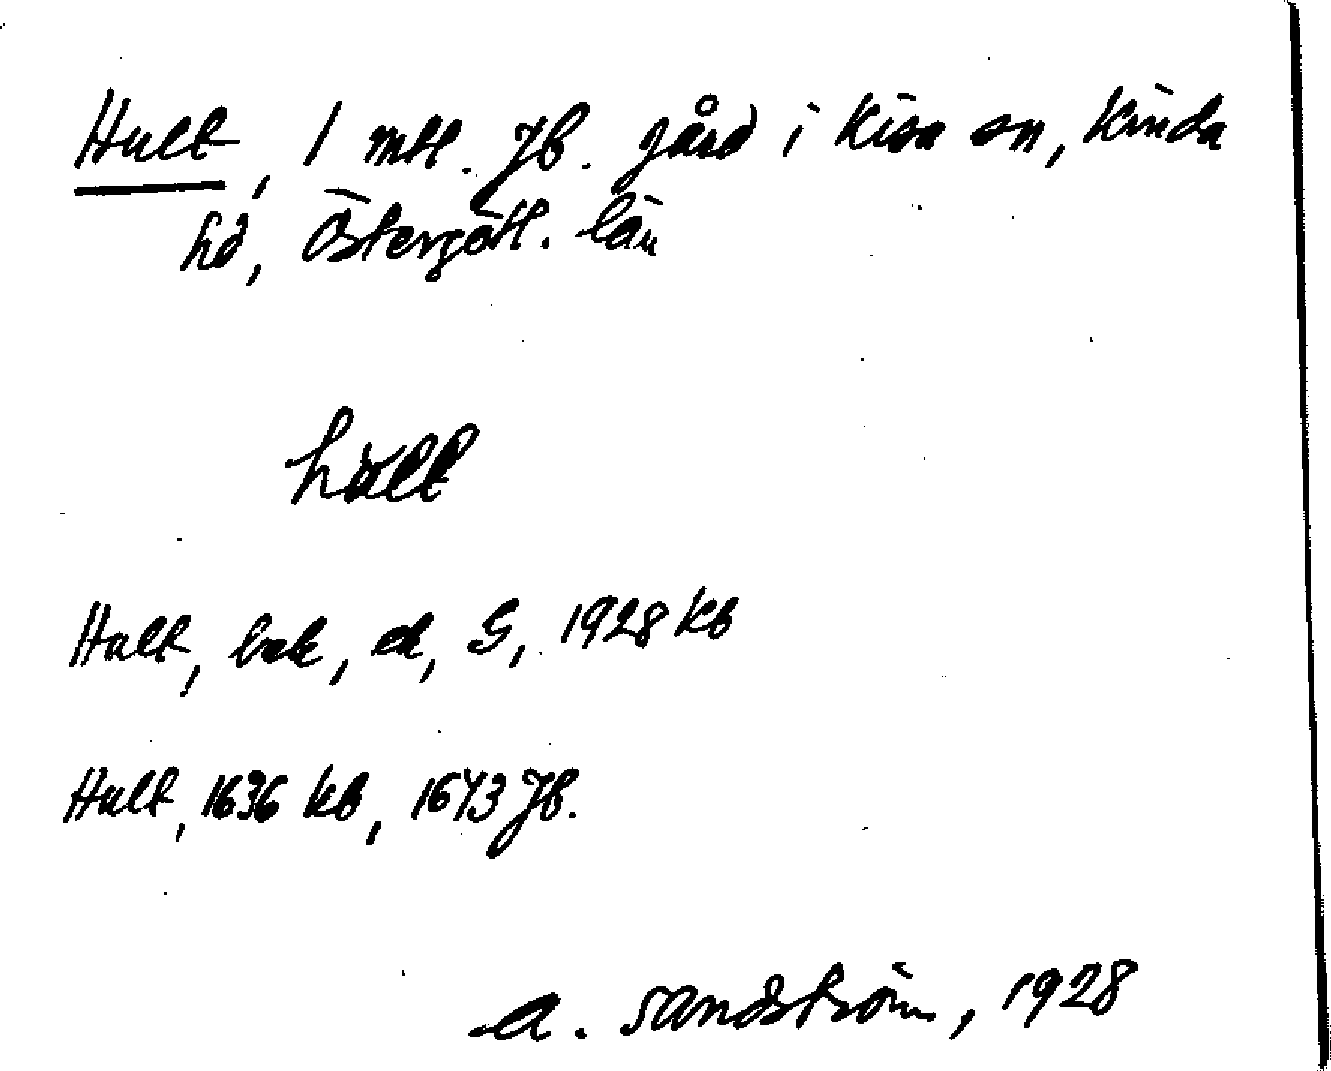 Hult, 1 mtl. Jb. gård i Kisa sn, Kinda
hd, Östergötl. län
hult
Hult, bok, ek, G, 1928 kb
Hult, 1636 kb, 1643 Jb.
A. Sandström, 1928